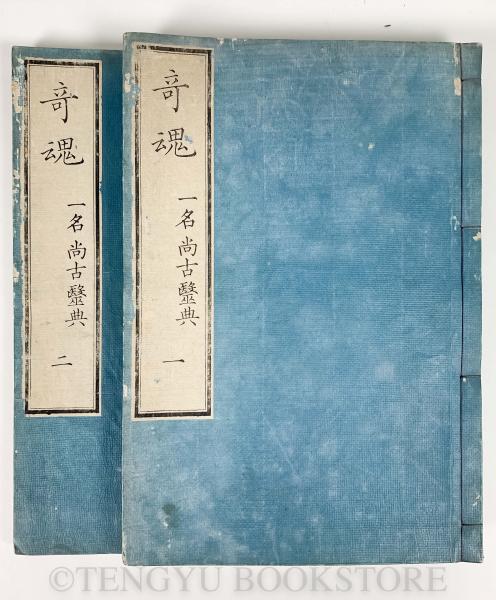 奇魂
一名尚古毉典
一
奇魂
一名尚古毉典
二
©TENGYU BOOKSTORE